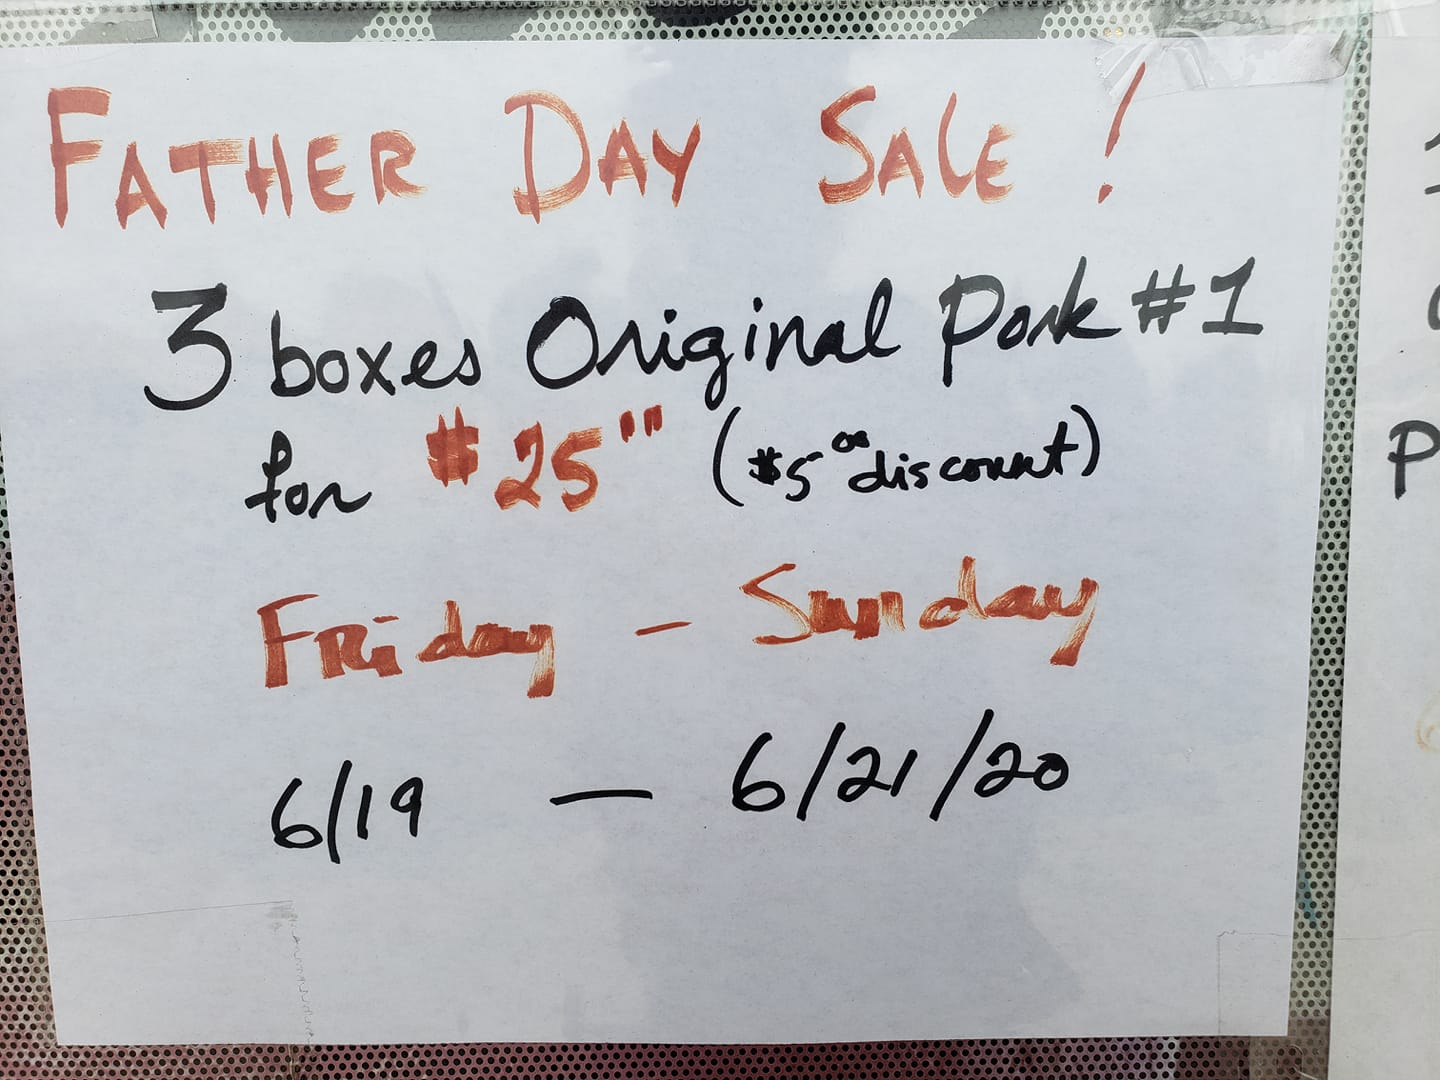 FATHER DAY SALE !
3 boxes Original Pork #1
for $25"" ($5⁰⁰ discount)
FRiday - Sunday
6/19 — 6/21/20
P